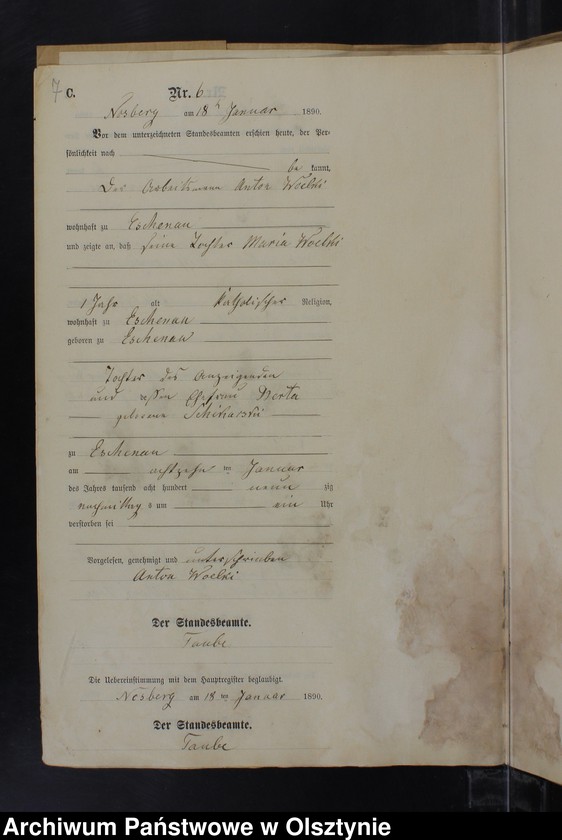 7 C. Nr. 6
Nosberg am 18 t Januar 1890.
Vor dem unterzeichneten Standesbeamten erschien heute, der Per-
sönlichkeit nach
be kannt,
Der Arbeitsmann Anton Woelki
wohnhaft zu Eschenau
und zeigte an, daß seine Tochter Maria Woelki
1 Jahr alt katholischer Religion,
wohnhaft zu Eschenau
geboren zu Eschenau
Tochter des Anzeigenden
und dessen Ehefrau Berta
geborene
zu Eschenau
am achtzehn ten Januar
des Jahres tausend acht hundert neun zig
nachmittag s um ein Uhr
verstorben sei
Vorgelesen, genehmigt und unterschrieben
Anton Woelki
Der Standesbeamte.
Taube
Die Uebereinstimmung mit dem Hauptregister beglaubigt.
Nosberg am 18 ten Januar 1890.
Der Standesbeamte.
Taube
Archiwum Państwowe w Olsztynie